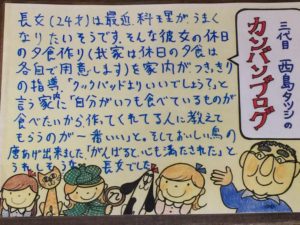 三代目 西島タツシの
カンバンブログ
長女(24才)は最近、料理がうまく
なりたいそうです。そんな彼女の休日
の夕食作り(我家は休日の夕食は
各自で用意します)を家内がつきっきり
の指導「クックパッドよりいいでしょう?」と
言う家に「自分がいつも食べているものが
食べたいから作ってくれてる人に教えて
もらうのが一番いい」と。そしておいしい鳥の
唐あげ出来ました「がんばると、心も満たされた」と
うれしそうな 長女でした